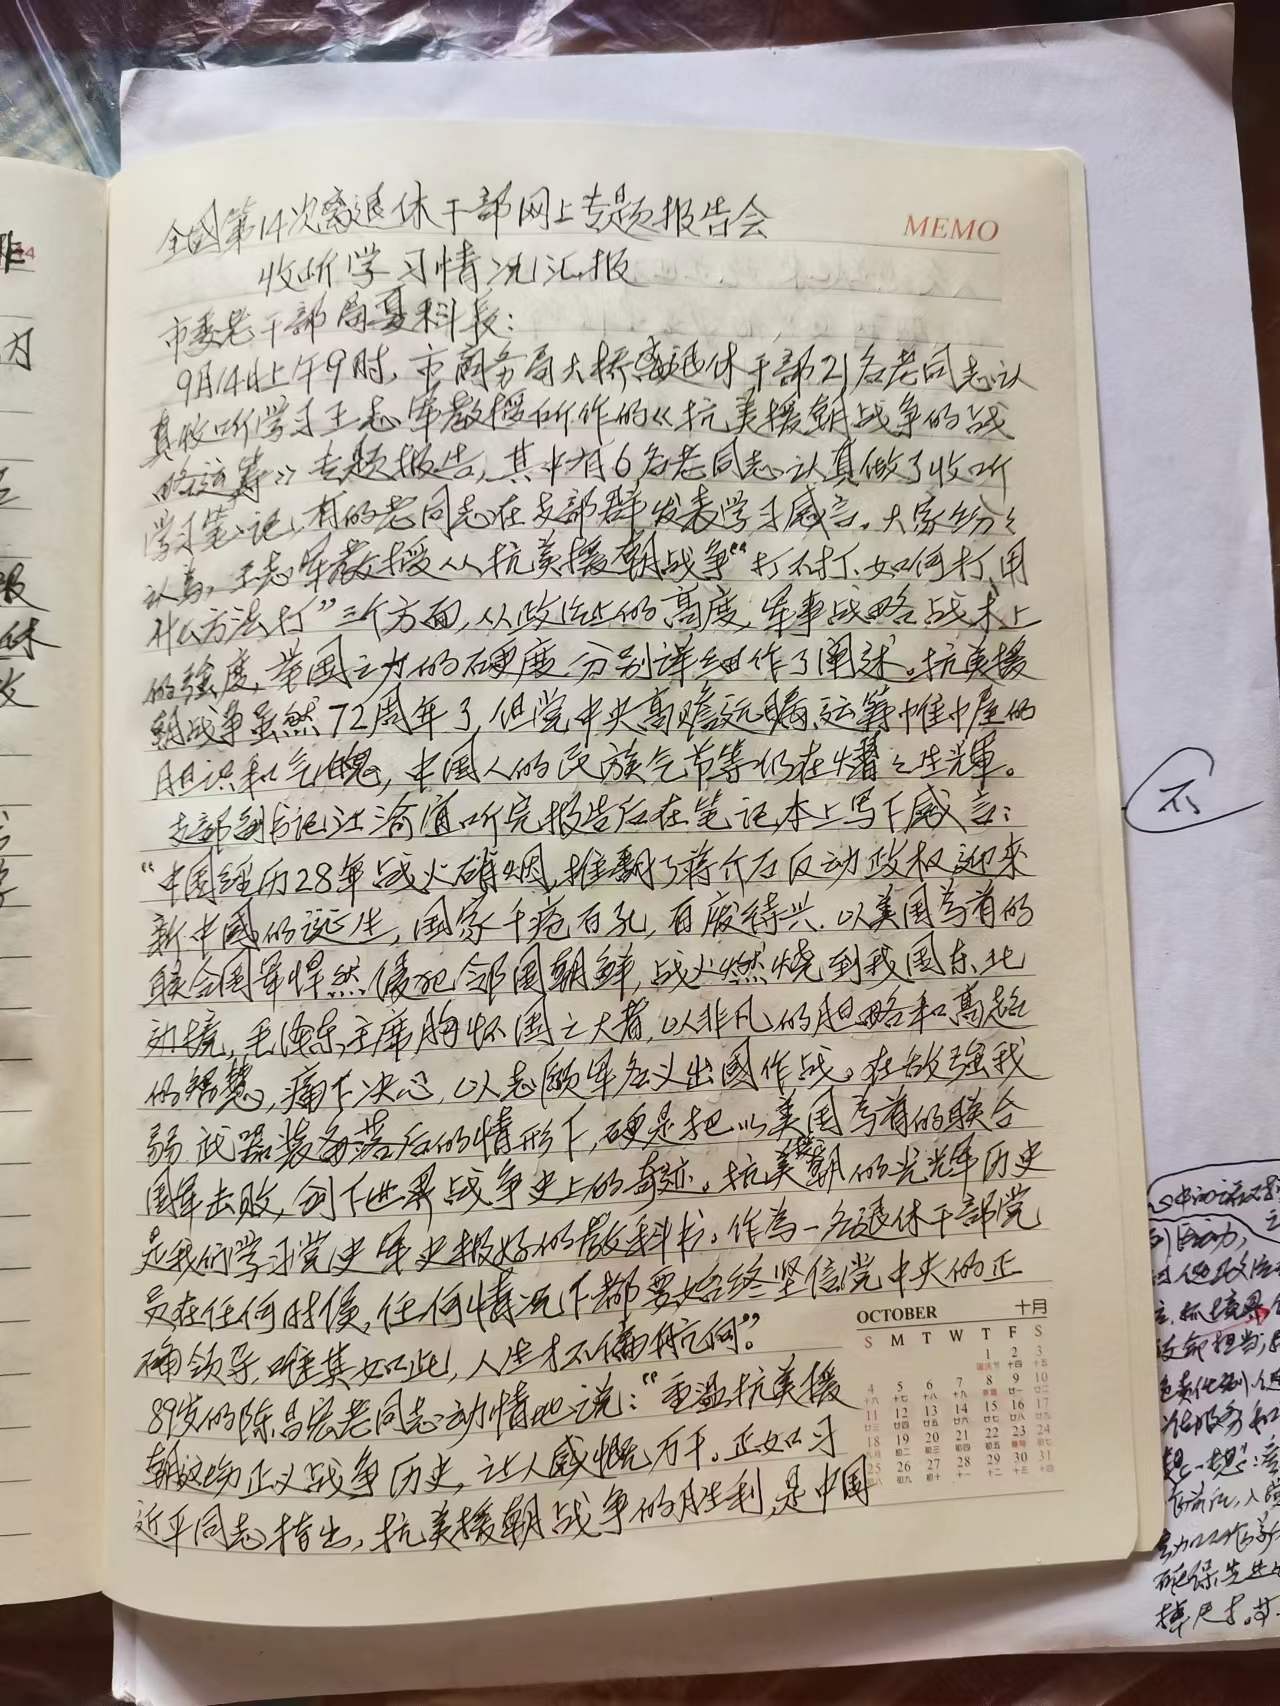 全国第14次离退休干部网上专题报告会
MEMO
收听学习情况汇报
市委老干部局夏科长:
9月14日上午9时,市商务局大桥离退休干部21名老同志认
真收听学习王志军教授所作的《抗美援朝战争的战
略运筹》专题报告,其中有6名老同志认真做了收听
学习笔记,有的老同志在支部群发表学习感言。大家纷纷
认为,王志军教授从抗美援朝战争“打不打、如何打、用
什么方法打”三个方面,从政治上的高度,军事战略战术上
的强度,带国之力的硬度,分别详细作了阐述。抗美援
朝战争虽然72周年了,但党中央高瞻远瞩、运筹帷中座的
胆识和气魄,中国人的民族气节等仍在熠熠生辉。
支部副书记江渝通听完报告后在笔记本上写下感言:
“中国经历28年战火硝烟,推翻了蒋介石反动政权迎来
新中国的诞生,国家千疮百孔,百废待兴.以美国为首的
联合国军悍然侵犯邻国朝鲜,战火燃烧到我国东北
边境,毛泽东主席胸怀国之大者,以非凡的胆略和高超
的智慧,痛下决心,以志愿军名义出国作战。在敌强我
弱武器装备落后的情形下,硬是把以美国为首的联合
国军击败,创下世界战争史上的奇迹。抗美援朝的光辉历史
是我们学习党史军史极好的教科书。作为一名退休干部党
员在任何时候,任何情况下都要始终坚信党中央的正
确领导,唯其如此,人生才不偏航向。”
89岁的陈昌宏老同志动情地说:“重温抗美援
朝这场正义战争历史,让人感慨万千。正如习
近平同志指出,抗美援朝战争的胜利,是中国
OCTOBER 十月
S M T W T F S
1 2 3
4 5 6 7 8 9 10
11 12 13 14 15 16 17
18 19 20 21 22 23 24
25 26 27 28 29 30 31
不